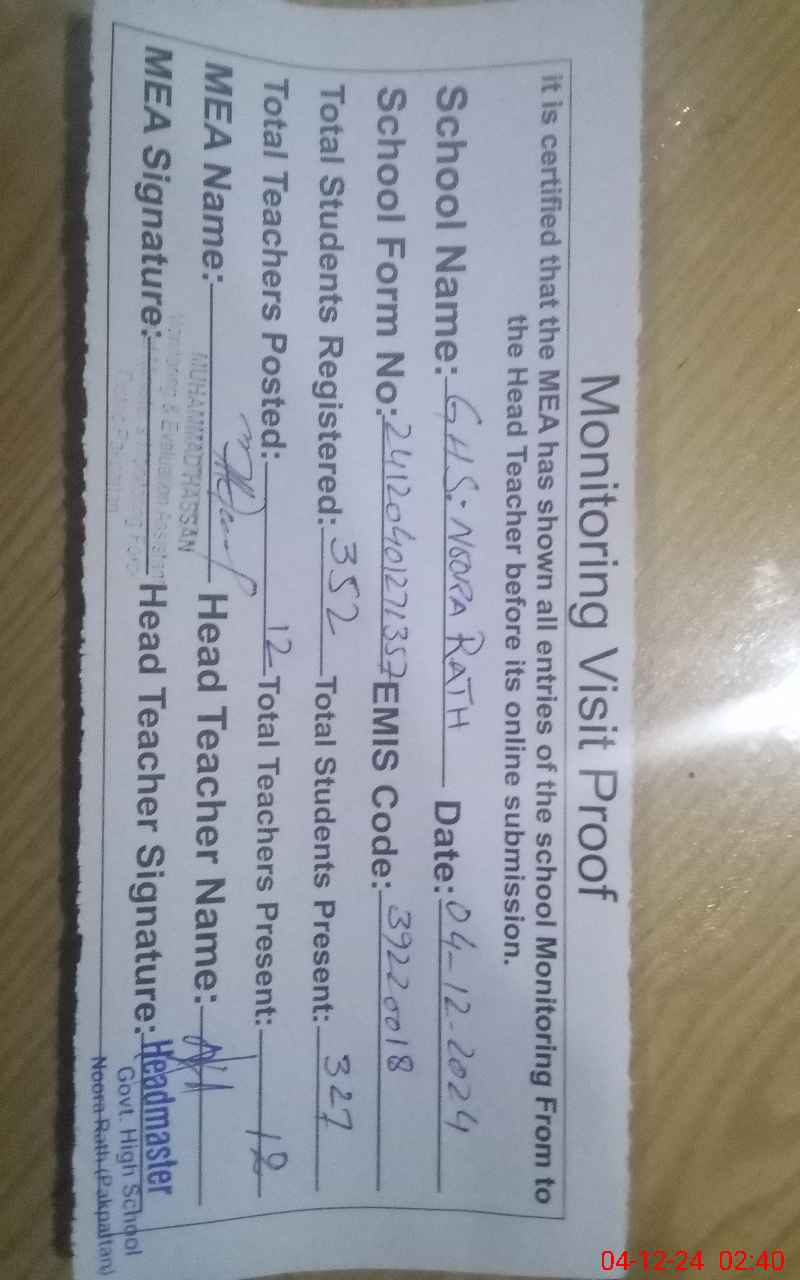 Monitoring Visit Proof
it is certified that the MEA has shown all entries of the school Monitoring From to
the Head Teacher before its online submission.
School Name: G.H.S: NOORA RATH Date: 04-12-2024
School Form No: 24120401271357 EMIS Code: 39220018
Total Students Registered: 352 Total Students Present: 327
Total Teachers Posted: 12 Total Teachers Present: 12
MEA Name: Head Teacher Name:
MUHAMMAD HASSAN
Monitoring & Evaluation Assistant
MEA Signature: Head Teacher Signature: Headmaster
Govt. High School
Noora Rath (Pakpattan)
04-12-24 02:40